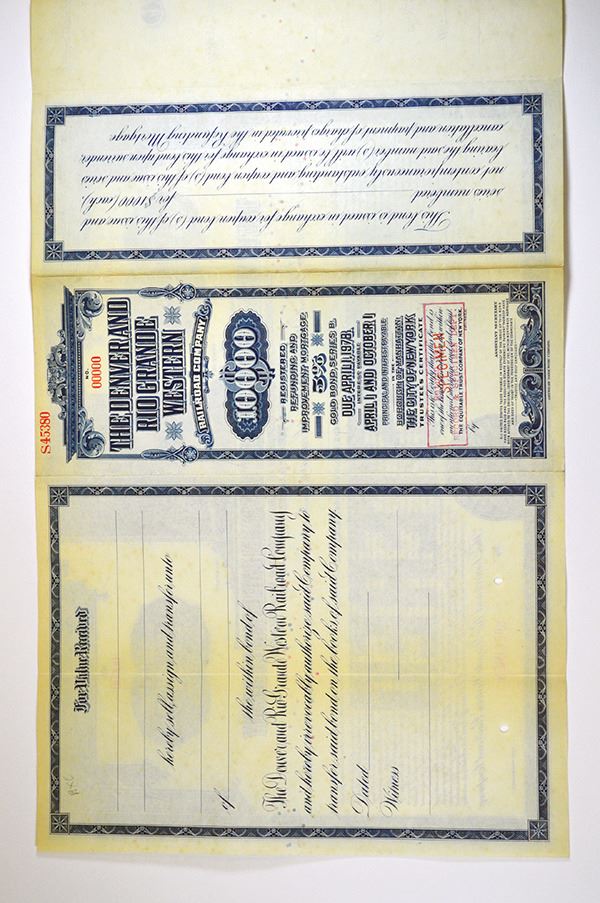 This bond is issued in exchange for coupon bond(s) of this issue and
series numbered for $1000 each,
not contemporaneously outstanding and coupon bond(s) of this issue and series
bearing the said number(s) will be issued in exchange for this bond upon surrender
cancellation and payment of charges, provided in the Refunding Mortgage
S45380
NO.
00000
THE DENVER AND
RIO GRANDE
WESTERN
RAILROAD COMPANY
$10000
REGISTERED
REFUNDING AND
IMPROVEMENT MORTGAGE
5%
GOLD BOND, SERIES B.
DUE APRIL 1, 1978,
INTEREST PAYABLE
APRIL 1 AND OCTOBER 1
PRINCIPAL AND INTEREST PAYABLE
IN THE
BOROUGH OF MANHATTAN,
THE CITY OF NEW YORK
TRUSTEE'S CERTIFICATE
SPECIMEN
THE EQUITABLE TRUST COMPANY OF NEW YORK,
by
ASSISTANT SECRETARY
For Value Received
hereby sell, assign and transfer unto
the within bond of
The Denver and Rio Grande Western Railroad Company
and hereby irrevocably authorize said Company to
transfer said bond on the books of said Company.
Dated
Witness